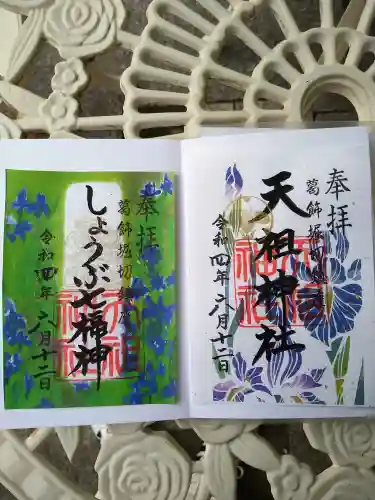 奉拝
天祖神社
葛飾堀切鎮座
令和四年六月十二日
奉拝
葛飾堀切鎮座
しょうぶ七福神
令和四年六月十二日